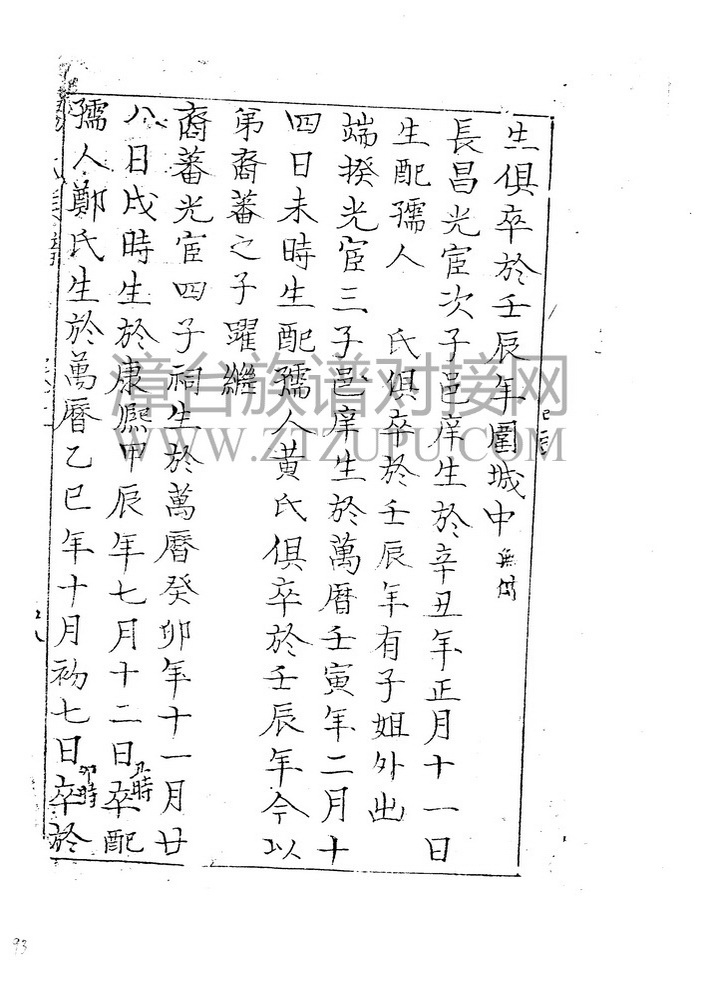 生俱卒於壬辰年圍城中
長昌光宦次子邑庠生於辛丑年正月十一日
生配孺人 氏俱卒於壬辰年有子姐外出
端揆光宦三子邑庠生於萬曆壬寅年二月十
四日未時生配孺人黃氏俱卒於壬辰年今以
弟裔蕃之子躍繼
裔蕃光宦四子祠生於萬曆癸卯年十一月廿
八日戌時生於康熙甲辰年七月十二日時卒配
孺人鄭氏生於萬曆乙巳年十月初七日卯時卒於
漳台族谱对接网
WWW.ZTZUPU.COM
93